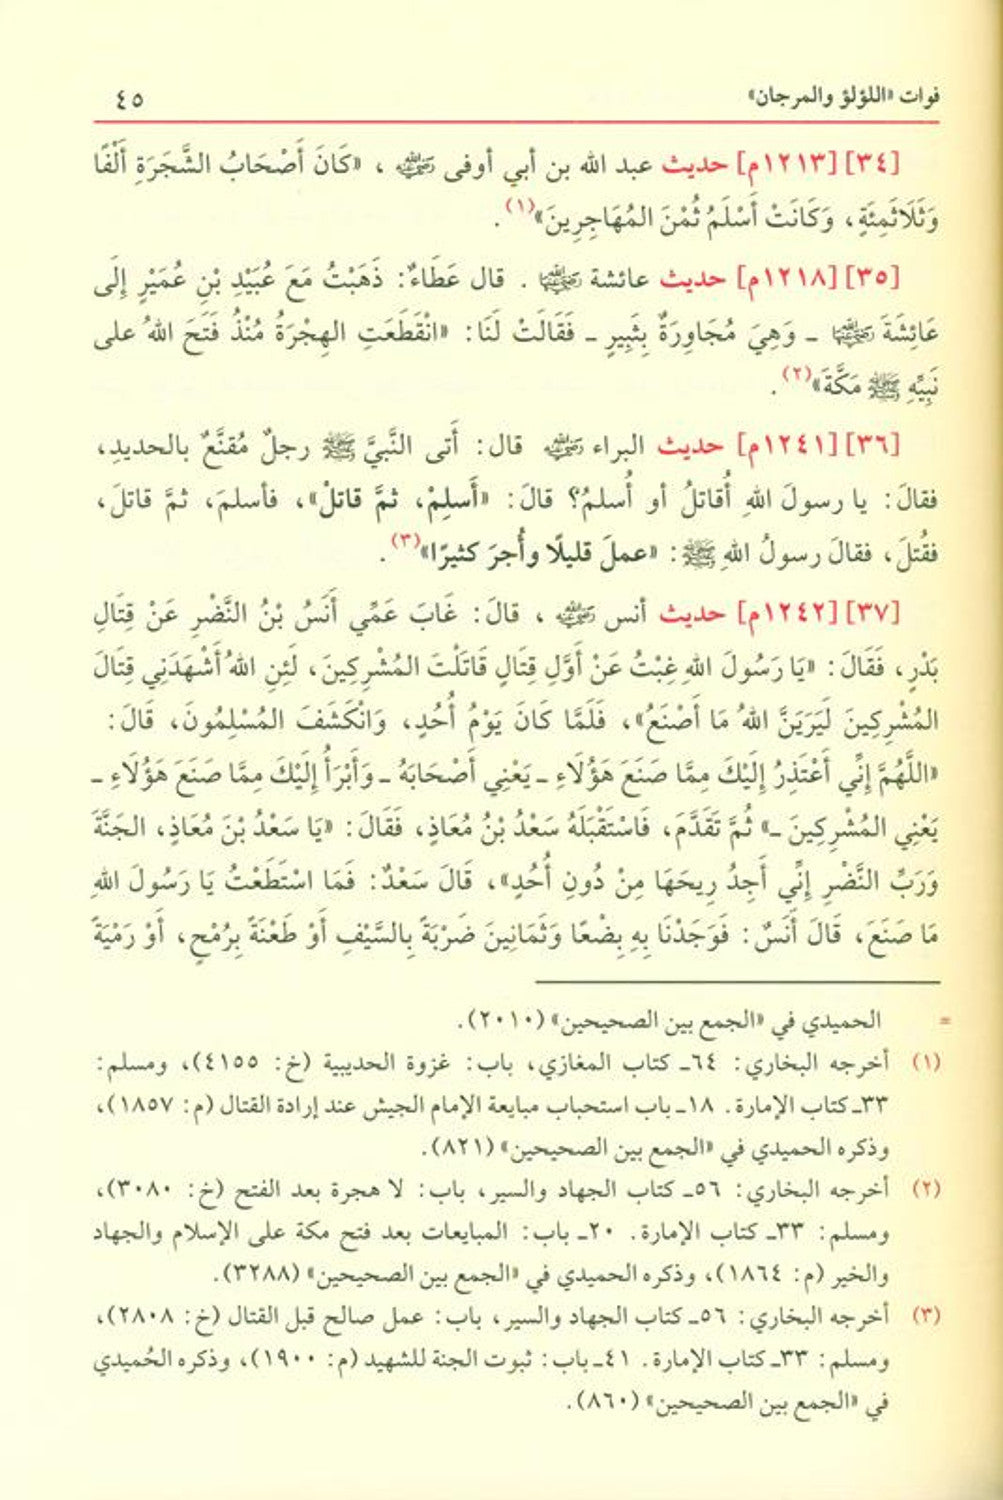 فوات «اللؤلؤ والمرجان» ٤٥
[٣٤] [١٢١٣م] حديث عبد الله بن أبي أوفى رضي الله عنه ، «كَانَ أَصْحَابُ الشَّجَرَةِ أَلْفًا
وَثَلَاثَمِئَةٍ، وَكَانَتْ أَسْلَمُ ثُمْنَ المُهَاجِرِينَ»(١) .
[٣٥] [١٢١٨م] حديث عائشة رضي الله عنها . قال عَطَاءٌ: ذَهَبْتُ مَعَ عُبَيْدِ بْنِ عُمَيْرٍ إِلَى
عَائِشَةَ رضي الله عنها ـ وَهِيَ مُجَاوِرَةٌ بِثَبِيرٍ ـ فَقَالَتْ لَنَا: «انْقَطَعَتِ الهِجْرَةُ مُنْذُ فَتَحَ اللهُ على
نَبِيِّهِ ﷺ مَكَّةَ»(٢) .
[٣٦] [١٢٤١م] حديث البراء رضي الله عنه قال: أَتى النَّبيَّ ﷺ رجلٌ مُقنَّعٌ بالحديدِ،
فقالَ: يا رسولَ اللهِ أُقاتلُ أو أُسلمُ؟ قالَ: «أَسلِمْ، ثمَّ قاتلْ»، فأسلمَ، ثمَّ قاتلَ،
فقُتلَ، فقالَ رسولُ اللهِ ﷺ: «عملَ قليلًا وأُجرَ كثيرًا»(٣) .
[٣٧] [١٢٤٢م] حديث أنس رضي الله عنه ، قالَ: غَابَ عَمِّي أَنَسُ بْنُ النَّضْرِ عَنْ قِتَالِ
بَدْرٍ، فَقَالَ: «يَا رَسُولَ اللهِ غِبْتُ عَنْ أَوَّلِ قِتَالٍ قَاتَلْتَ المُشْرِكِينَ، لَئِنِ اللهُ أَشْهَدَنِي قِتَالَ
المُشْرِكِينَ لَيَرَيَنَّ اللهُ مَا أَصْنَعُ»، فَلَمَّا كَانَ يَوْمُ أُحُدٍ، وَانْكَشَفَ المُسْلِمُونَ، قَالَ:
«اللَّهُمَّ إِنِّي أَعْتَذِرُ إِلَيْكَ مِمَّا صَنَعَ هَؤُلَاءِ ـ يَعْنِي أَصْحَابَهُ ـ وَأَبْرَأُ إِلَيْكَ مِمَّا صَنَعَ هَؤُلَاءِ ـ
يَعْنِي المُشْرِكِينَ ـ» ثُمَّ تَقَدَّمَ، فَاسْتَقْبَلَهُ سَعْدُ بْنُ مُعَاذٍ، فَقَالَ: «يَا سَعْدُ بْنَ مُعَاذٍ، الجَنَّةَ
وَرَبِّ النَّضْرِ إِنِّي أَجِدُ رِيحَهَا مِنْ دُونِ أُحُدٍ»، قَالَ سَعْدٌ: فَمَا اسْتَطَعْتُ يَا رَسُولَ اللهِ
مَا صَنَعَ، قَالَ أَنَسٌ: فَوَجَدْنَا بِهِ بِضْعًا وَثَمَانِينَ ضَرْبَةً بِالسَّيْفِ أَوْ طَعْنَةً بِرُمْحٍ، أَوْ رَمْيَةً
= الحميدي في «الجمع بين الصحيحين» (٢٠١٠).
(١) أخرجه البخاري: ٦٤ـ كتاب المغازي، باب: غزوة الحديبية (خ: ٤١٥٥)، ومسلم:
٣٣ـ كتاب الإمارة. ١٨ـ باب استحباب مبايعة الإمام الجيش عند إرادة القتال (م: ١٨٥٧)،
وذكره الحميدي في «الجمع بين الصحيحين» (٨٢١).
(٢) أخرجه البخاري: ٥٦ـ كتاب الجهاد والسير، باب: لا هجرة بعد الفتح (خ: ٣٠٨٠)،
ومسلم: ٣٣ـ كتاب الإمارة. ٢٠ـ باب: المبايعات بعد فتح مكة على الإسلام والجهاد
والخير (م: ١٨٦٤)، وذكره الحميدي في «الجمع بين الصحيحين» (٣٢٨٨).
(٣) أخرجه البخاري: ٥٦ـ كتاب الجهاد والسير، باب: عمل صالح قبل القتال (خ: ٢٨٠٨)،
ومسلم: ٣٣ـ كتاب الإمارة. ٤١ـ باب: ثبوت الجنة للشهيد (م: ١٩٠٠)، وذكره الحُميدي
في «الجمع بين الصحيحين» (٨٦٠).